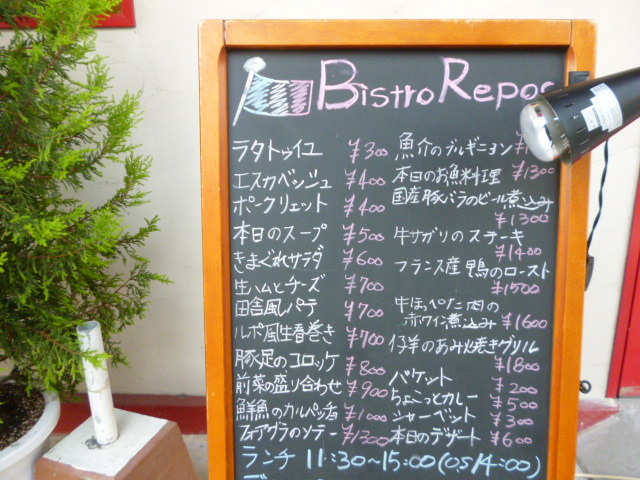 Bistro Repos
ラタトゥイユ ¥300
エスカベッシュ ¥400
ポークリエット ¥400
本日のスープ ¥500
きまぐれサラダ ¥600
生ハムとチーズ ¥700
田舎風パテ ¥700
ルポ風生春巻き ¥700
豚足のコロッケ ¥800
前菜の盛り合わせ ¥900
鮮魚のカルパッチョ ¥1000
フォアグラのソテー ¥1300
魚介のブルギニョン
本日のお魚料理 ¥1300
国産豚バラのビール煮込み
¥1300
牛サガリのステーキ
¥1400
フランス産 鴨のロースト
¥1500
牛ほっぺた肉の
赤ワイン煮込み ¥1600
仔羊のあみ焼きグリル
¥1800
バケット ¥200
ちょこっとカレー ¥500
シャーベット ¥300
本日のデザート ¥600
ランチ 11:30~15:00(O.S14:00)